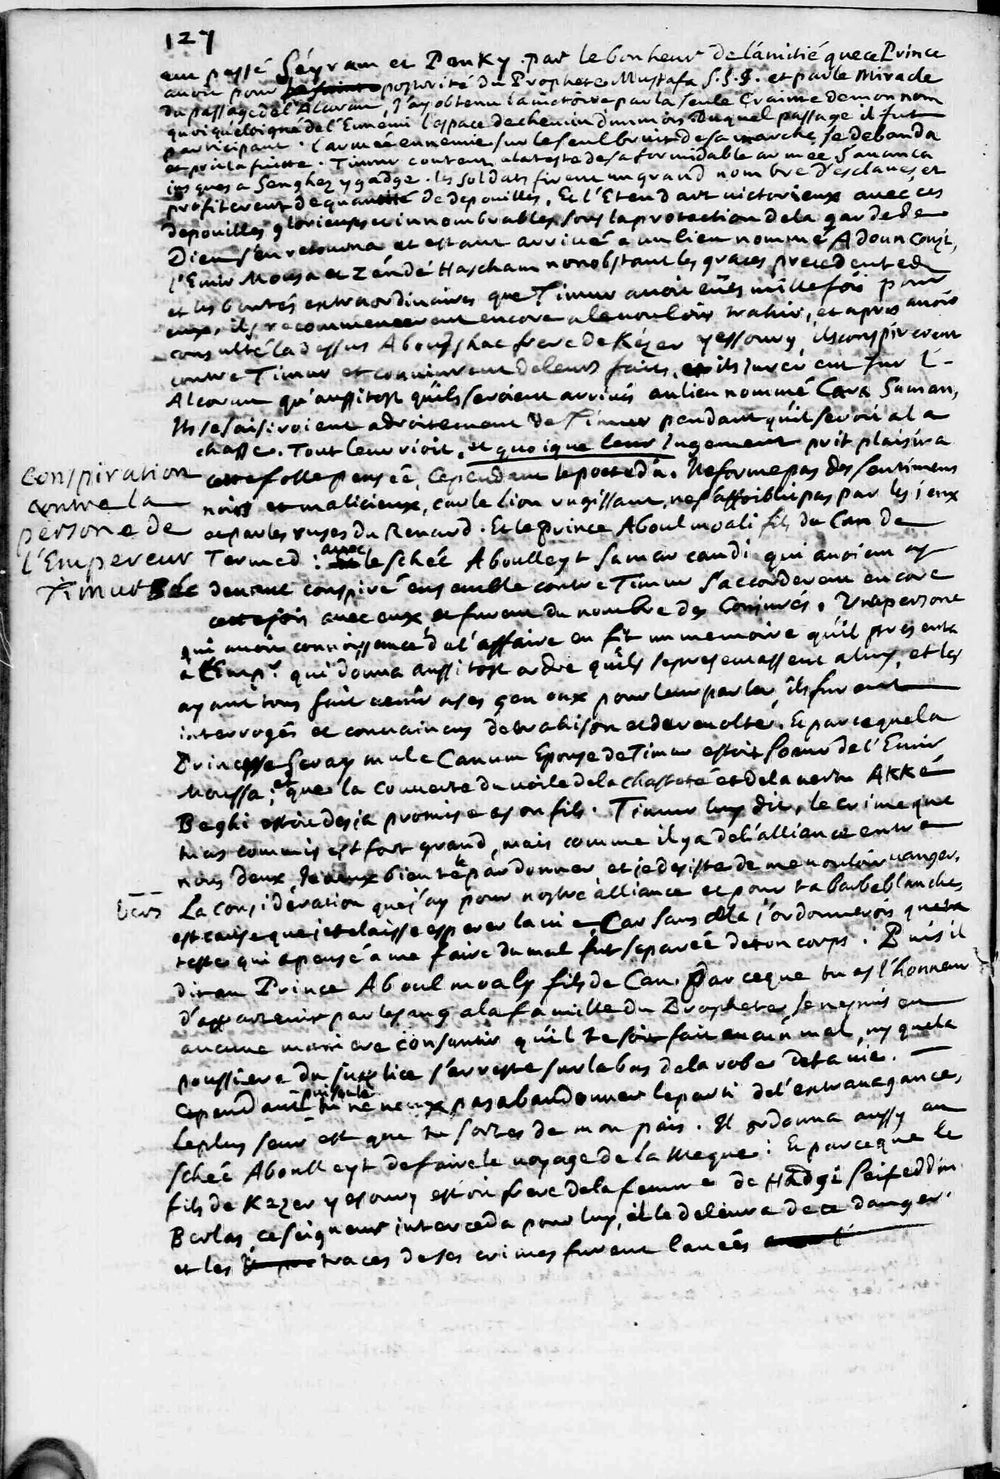 127
eut passé Séyram et Penky. par le bonheur de l'amitié que ce Prince
avoit pour posterité du Prophete Mustafa S.S.S. et par le Miracle
du passage de l'Alcoran, J'ay obtenu la victoire par la seule Crainte de mon nom
quoiqu'eloigné de l'Ennemi l'espace de chemin d'un mois Duquel passage il fut
participant. l'armée ennemie sur le seul bruit de sa marche se debanda
et prit la fuitte. Timur content, a la teste de sa formidable armée S'avança
jusques a Senghez ygadge. les soldats firent un grand nombre d'esclaves, et
profiterent de quantité de depouilles, Et l'Etendart victorieux avec ces
depouilles glorieuses et innombrables, sous la protection de la garde de
Dieu s'en retourna et estant arrivé a un lieu nommé Adoun Couzi,
l'Emir Mousa et Zéndé Hascham nonobstant les graces precedentes
et les bontés extraordinaires que Timur avoit eües mille fois pour
eux, ils recommencerent encore a le vouloir trahir, et apres avoir
consulté la dessus Abou Ishac frere de Kézer yessoury, ils conspirerent
contre Timur et convinrent de leurs faits, ils jurerent sur l'-
Alcoran qu'aussitost qu'ils seroient arrivés au lieu nommé Cara Suman,
Ils se saisiroient adroitement de Timur pendant qu'il seroit a la
chasse. Tout leur rioit, et quoique leur Jugement prit plaisir a
cette folle pensée, Cependant le poete dit. Ne forme pas des sentimens
noirs et malicieux, car le lion rugissant, ne s'affoiblit pas par les jeux
et par les ruses du Renard. Et le Prince Aboul moali fils du Can de
Termed: avec le schéé Aboulleyt Samarcandi qui avoient cy
devant conspiré ensemble contre Timur s'accorderent encore
cette fois avec eux et furent du nombre des Conjurés. Une persone
qui avoit connoissance de l'affaire en fit un memoire qu'il presenta
a l'Empr. qui donna aussitost ordre qu'ils se presentassent a luy, et les
ayant tous fait venir a ses genoux pour leur parler, ils furent
interrogés et convaincus de trahison et de revolte. Et parce que la
Princesse Seray mule Canum Epouse de Timur estoit Soeur de l'Emir
Moussa; et que la couverte du voile de la chasteté et de la vertu Akké
Beghi estoit desja promise a son fils. Timur luy dit, le crime que
tu as commis est fort grand, mais comme il y a de l'alliance entre
nous deux, Je veux bien te le pardonner et je desiste de me vouloir vanger,
La consideration que j'ay pour nostre alliance et pour ta barbe blanche,
est cause que je te laisse esperer la vie, Car sans cela j'ordonnerois que ta
teste qui a pensé a me faire du mal fut separée de ton corps. Puis il
dit au Prince Aboul moaly fils de Can. Parce que tu as l'honneur
d'appartenir par le sang a la famille du Prophete, Je ne puis en
aucune maniere consentir qu'il te soit fait aucun mal, ny que la
poussiere du supplice s'arreste sur le bas de la robe de ta vie.
Cependant puisque tu ne veux pas abandonner le parti de l'extravagance,
le plus seur est que tu sortes de mon païs. Il ordonna aussy au
schéé Aboulleyt de faire le voyage de la Meque: Et parce que le
fils de Kezer yesoury estoit frere de la femme de Hadgi Seifeddin
Berlas, ce seigneur interceda pour luy, il le delivra de ce danger
et les traces de ses crimes furent lavées
Conspiration
contre la
persone de
l'Empereur
Timur Béc
Vers